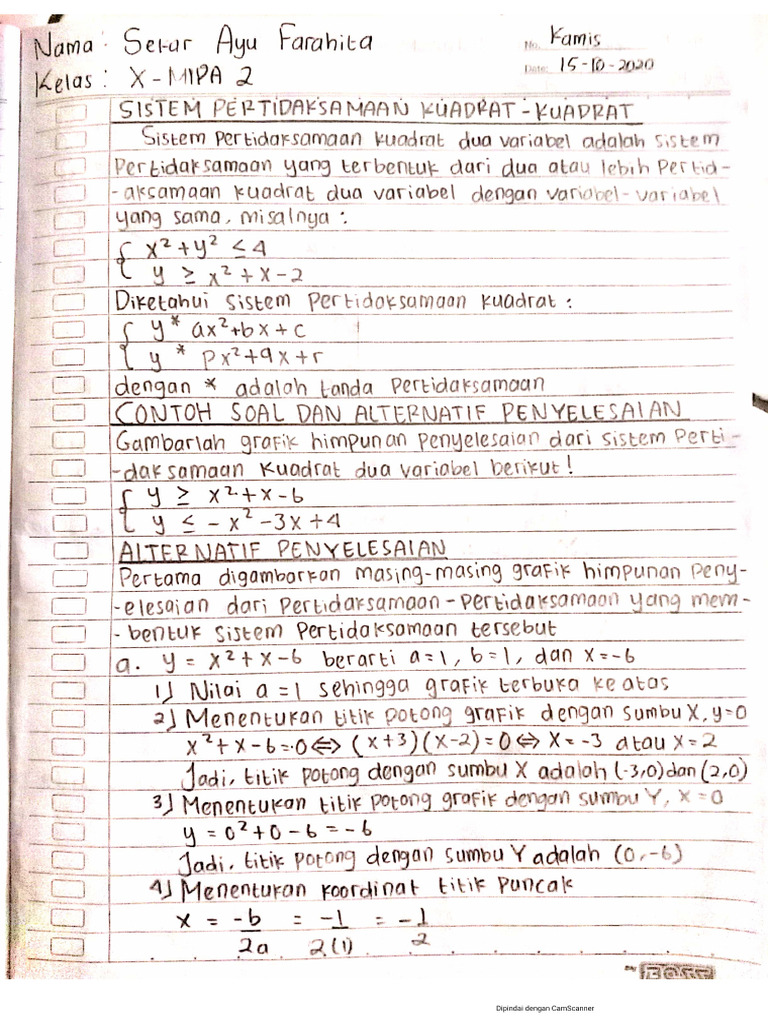 Nama : Sekar Ayu Farahita
No. Kamis
Kelas : X-MIPA 2
Date: 15-10-2020
SISTEM PERTIDAKSAMAAN KUADRAT-KUADRAT
Sistem Pertidaksamaan kuadrat dua variabel adalah sistem
Pertidaksamaan yang terbentuk dari dua atau lebih Pertid-
-aksamaan kuadrat dua variabel dengan variabel-variabel
yang sama, misalnya :
{ x² + y² ≤ 4
{ y ≥ x² + x - 2
Diketahui sistem Pertidaksamaan kuadrat :
{ y * ax²+bx+c
{ y * Px²+qx+r
dengan * adalah tanda Pertidaksamaan
CONTOH SOAL DAN ALTERNATIF PENYELESAIAN
Gambarlah grafik himpunan penyelesaian dari sistem Perti-
-daksamaan kuadrat dua variabel berikut!
{ y ≥ x²+x-6
{ y ≤ -x²-3x+4
ALTERNATIF PENYELESAIAN
Pertama digambarkan masing-masing grafik himpunan Peny-
-elesaian dari Pertidaksamaan-Pertidaksamaan yang mem-
-bentuk sistem Pertidaksamaan tersebut
a. y = x²+x-6 berarti a=1, b=1, dan x=-6
1) Nilai a=1 sehingga grafik terbuka ke atas
2) Menentukan titik potong grafik dengan sumbu X, y=0
x²+x-6=0⇔(x+3)(x-2)=0⇔x=-3 atau x=2
Jadi, titik potong dengan sumbu X adalah (-3,0) dan (2,0)
3) Menentukan titik potong grafik dengan sumbu Y, x=0
y = 0²+0-6=-6
Jadi, titik potong dengan sumbu Y adalah (0,-6)
4) Menentukan koordinat titik Puncak
x = -b/2a = -1/2(1) = -1/2
By BOSS
Dipindai dengan CamScanner